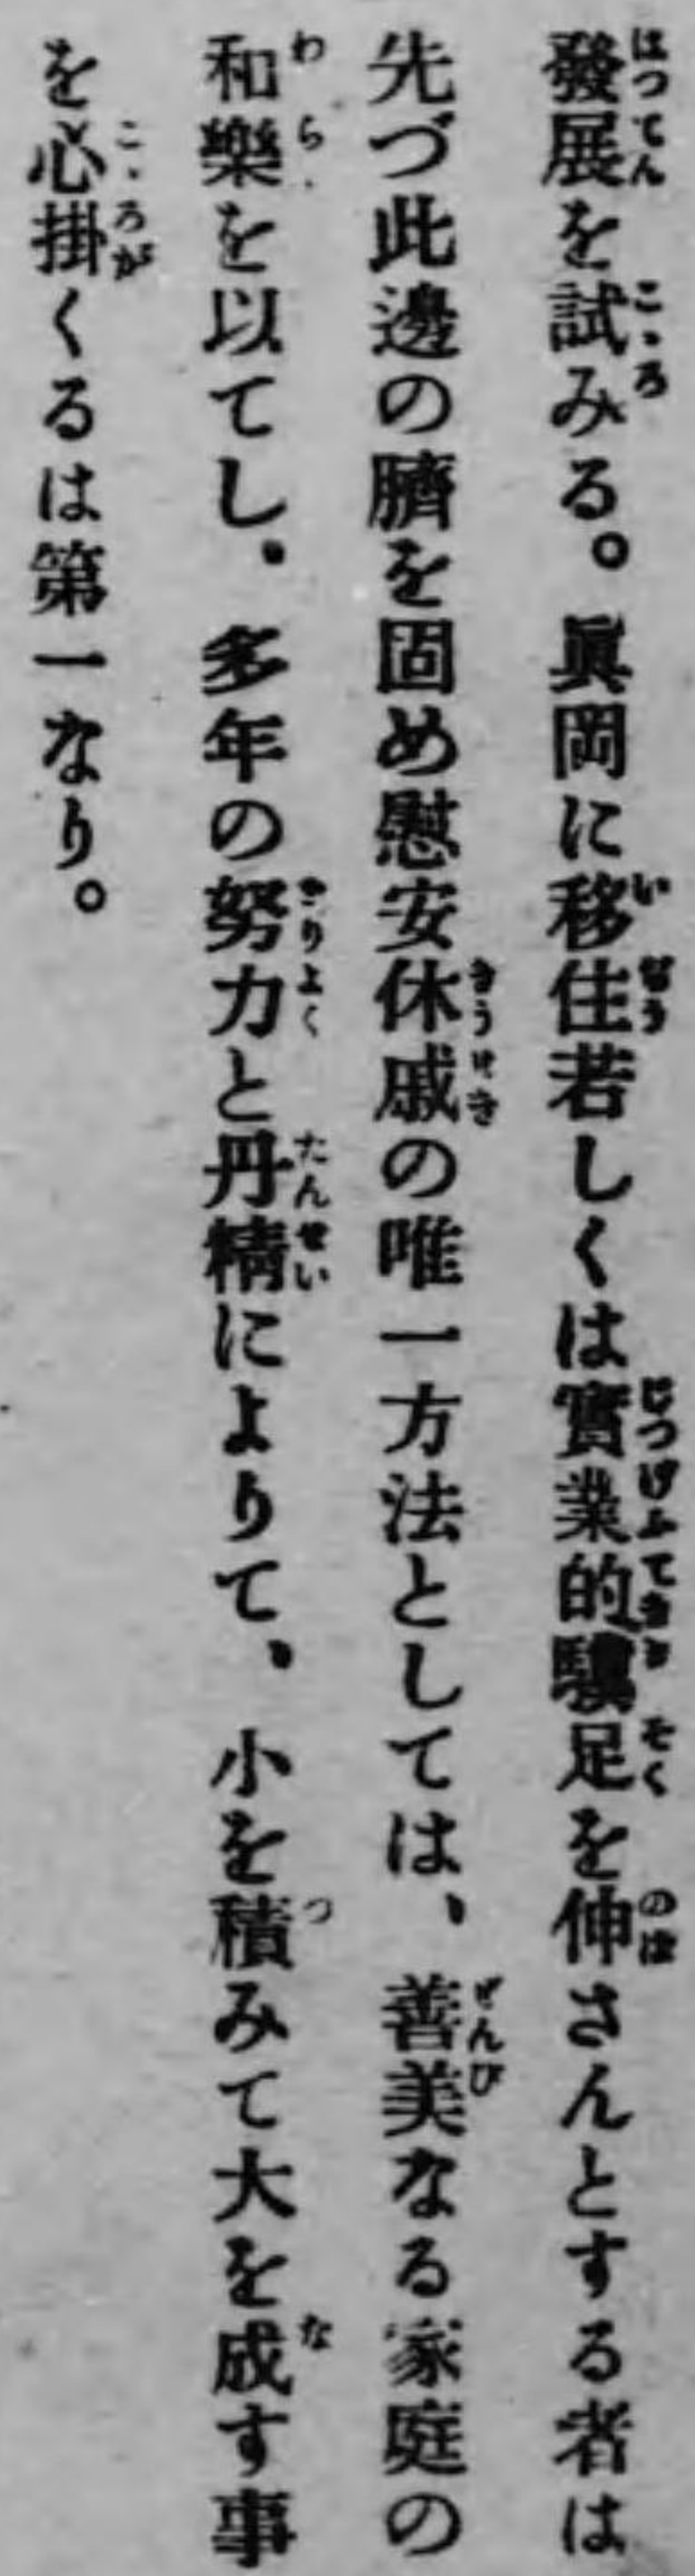 發展を試みる。眞岡に移住若しくは實業的驥足を伸さんとする者は
先づ此邊の臍を固め慰安休戚の唯一方法としては、善美なる家庭の
和樂を以てし、多年の努力と丹精によりて、小を積みて大を成す事
を心掛くるは第一なり。